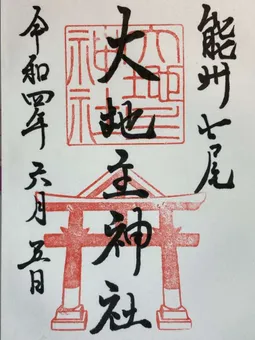 能州七尾
大地主神社
令和四年 六月 五日
大地主
神社